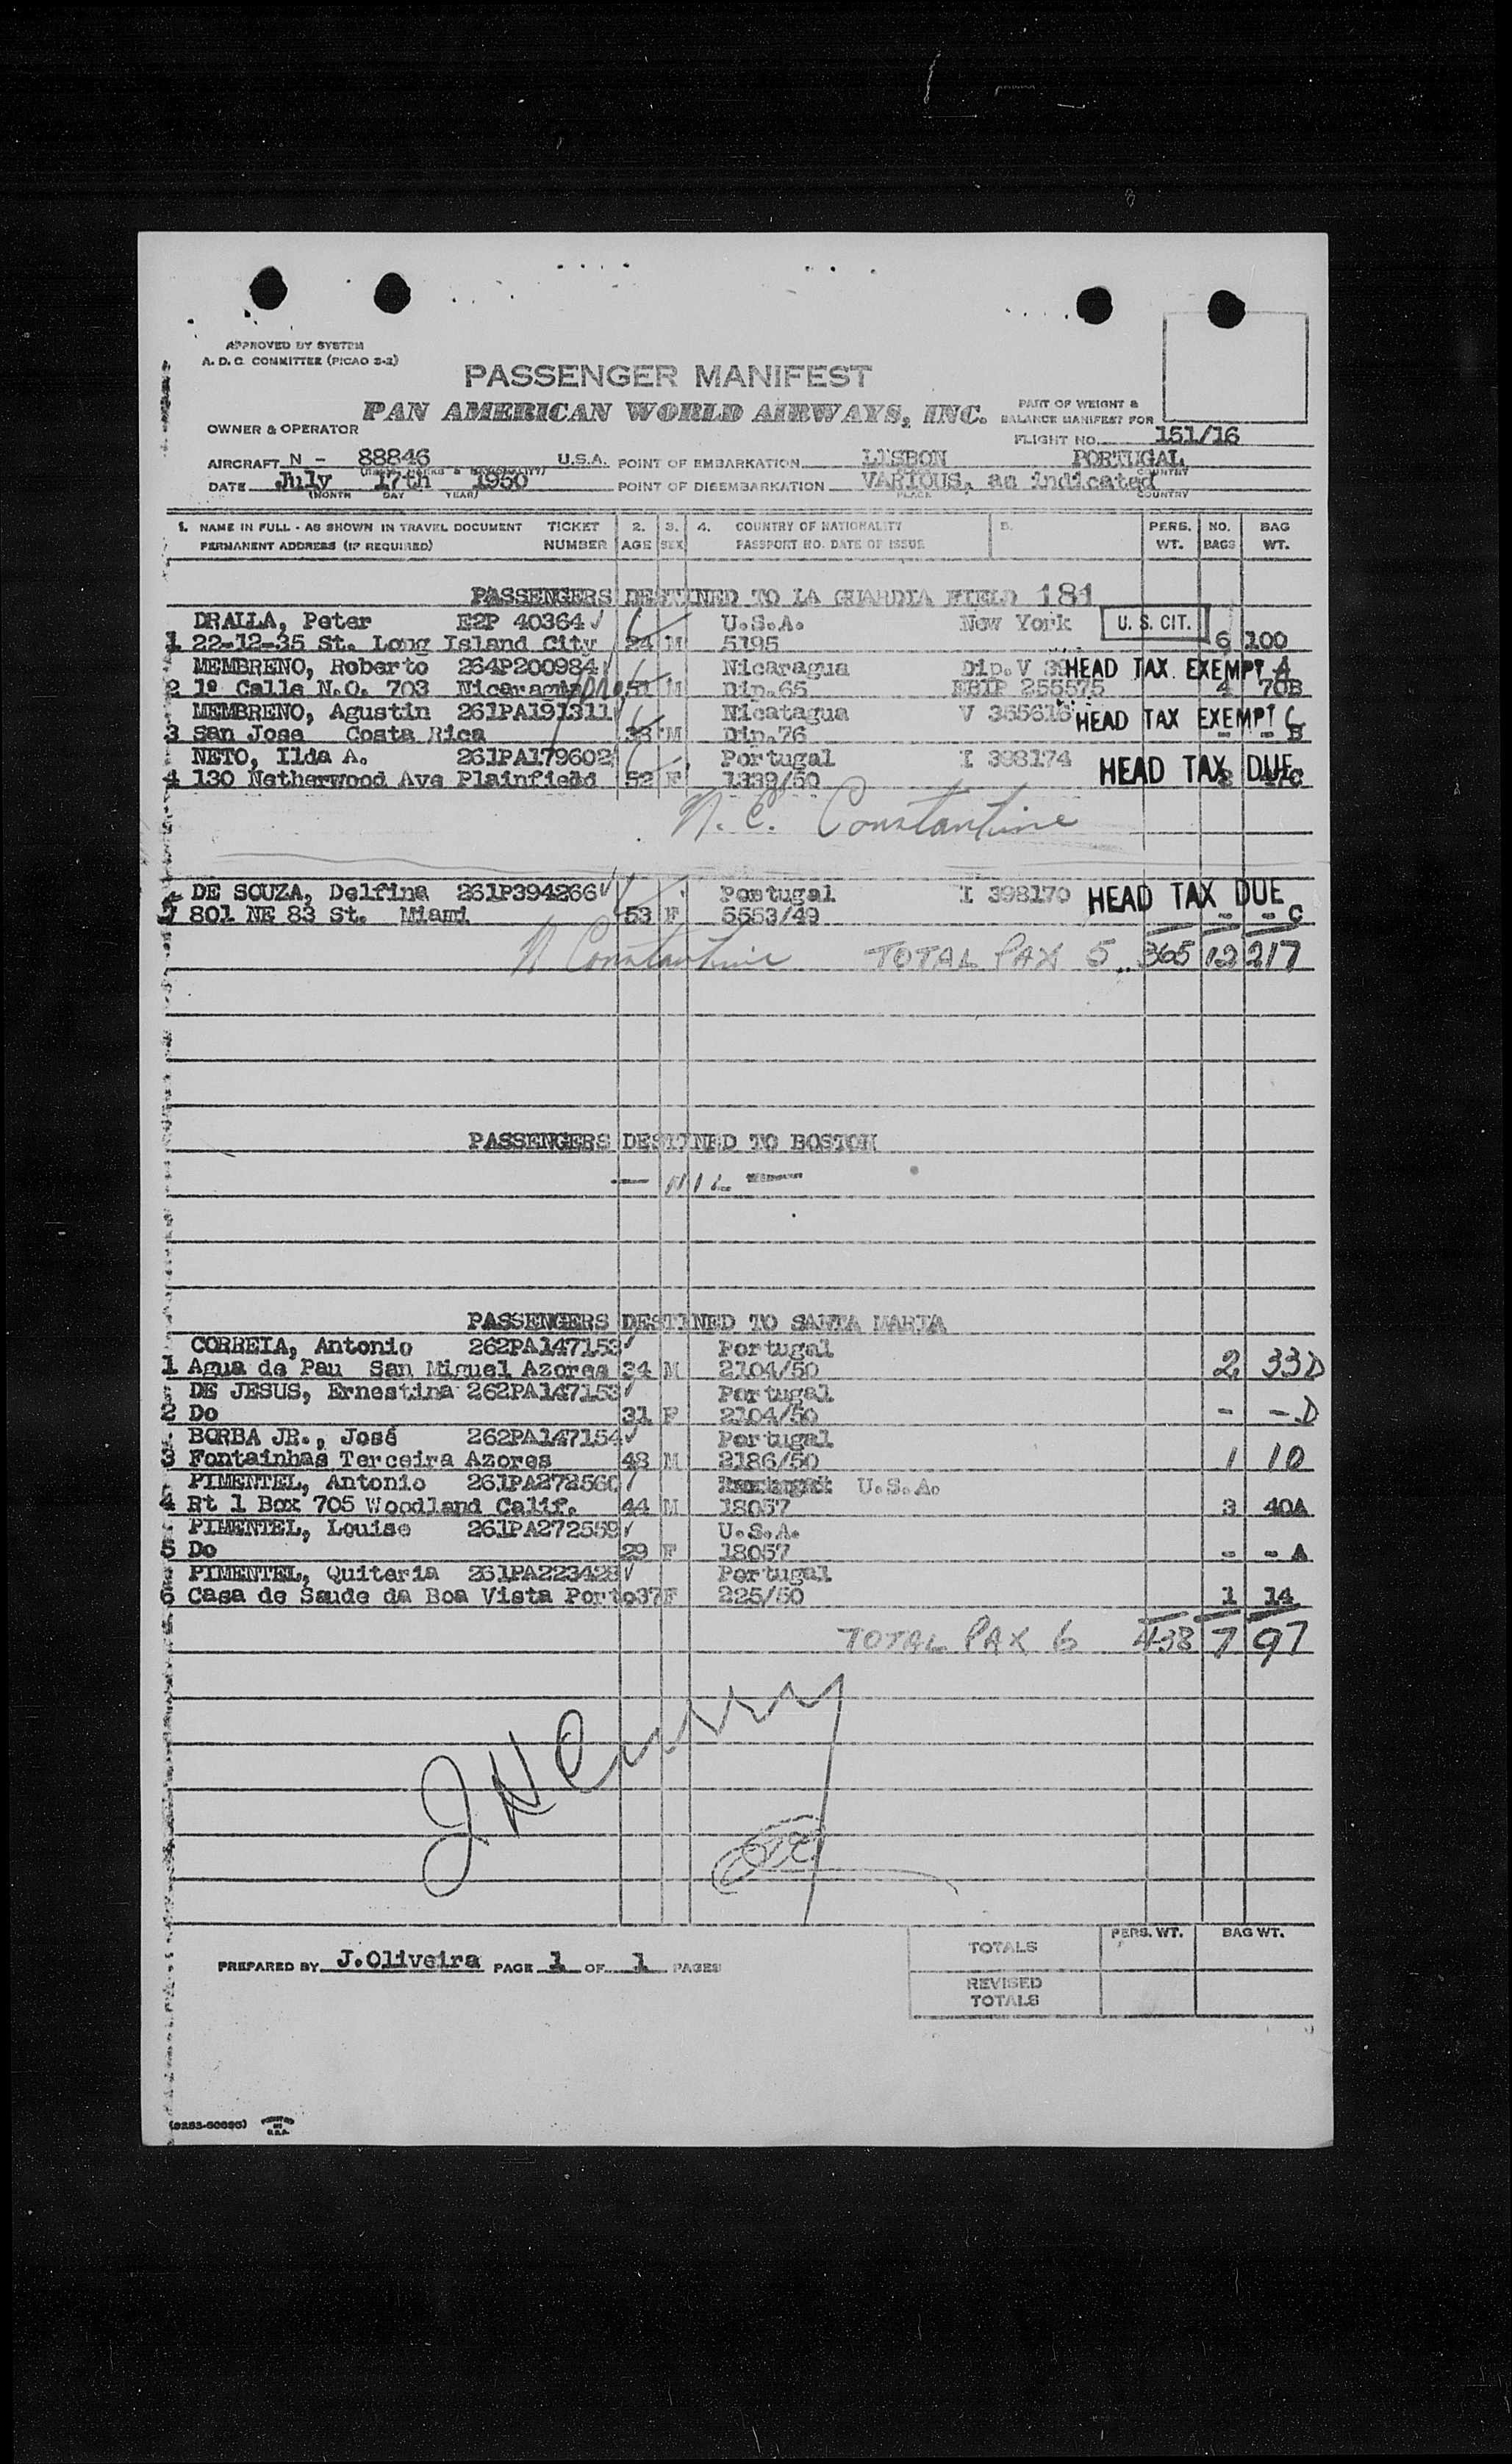 APPROVED BY SYSTEM
A. D. C. COMMITTEE (PICAO 2-2)
PASSENGER MANIFEST
PAN AMERICAN WORLD AIRWAYS, INC.
OWNER & OPERATOR
PART OF WEIGHT &
BALANCE MANIFEST FOR
FLIGHT NO. 151/16
AIRCRAFT N - 88846 U.S.A. POINT OF EMBARKATION LISBON PORTUGAL
DATE July 17th 1950 POINT OF DISEMBARKATION VARIOUS, as indicated
(MONTH DAY YEAR) PLACE COUNTRY
1. NAME IN FULL - AS SHOWN IN TRAVEL DOCUMENT TICKET 2. 3. 4. COUNTRY OF NATIONALITY 5. PERS. NO. BAG
PERMANENT ADDRESS (IF REQUIRED) NUMBER AGE SEX PASSPORT NO. DATE OF ISSUE WT. BAGS WT.
PASSENGERS DESTINED TO LA GUARDIA FIELD 181
DRALLA, Peter E2P 40364 U.S.A. New York U. S. CIT.
1 22-12-35 St. Long Island City 24 M 5195 6 100
MEMBRENO, Roberto 264P200984 Nicaragua Dip.V 39 HEAD TAX EXEMPT A
2 1º Calle N.O. 703 Nicaragua 51 M Dip.65 EBIP 255575 4 70B
MEMBRENO, Agustin 261PA191311 Nicatagua V 355616 HEAD TAX EXEMPT C
3 San Jose Costa Rica 38 M Dip.76 - - B
NETO, Ilda A. 261PA179602 Portugal I 398174 HEAD TAX DUE
4 130 Netherwood Ave Plainfield 52 F 1339/50
N. E. Constantine
DE SOUZA, Delfina 261P394266 Portugal I 398170 HEAD TAX DUE
5 801 NE 83 St. Miami 53 F 5553/49 - - C
N Constantine TOTAL PAX 5 365 12 217
PASSENGERS DESTINED TO BOSTON
— NIL —
PASSENGERS DESTINED TO SANTA MARIA
CORREIA, Antonio 262PA147153 Portugal
1 Agua de Pau San Miguel Azores 34 M 2104/50 2 33D
DE JESUS, Ernestina 262PA147153 Portugal
2 Do 31 F 2104/50 - - D
BORBA JR., José 262PA147154 Portugal
3 Fontainhas Terceira Azores 48 M 2186/50 1 10
PIMENTEL, Antonio 261PA272560 U.S.A.
4 Rt 1 Box 705 Woodland Calif. 44 M 18057 3 40A
PIMENTEL, Louise 261PA272559 U.S.A.
5 Do 29 F 18057 - - A
PIMENTEL, Quiteria 261PA223428 Portugal
6 Casa de Saude da Boa Vista Porto 37 F 225/50 1 14
TOTAL PAX 6 438 7 97
J H Curry
PREPARED BY J.Oliveira PAGE 1 OF 1 PAGES
PERS. WT. BAG WT.
TOTALS
REVISED
TOTALS